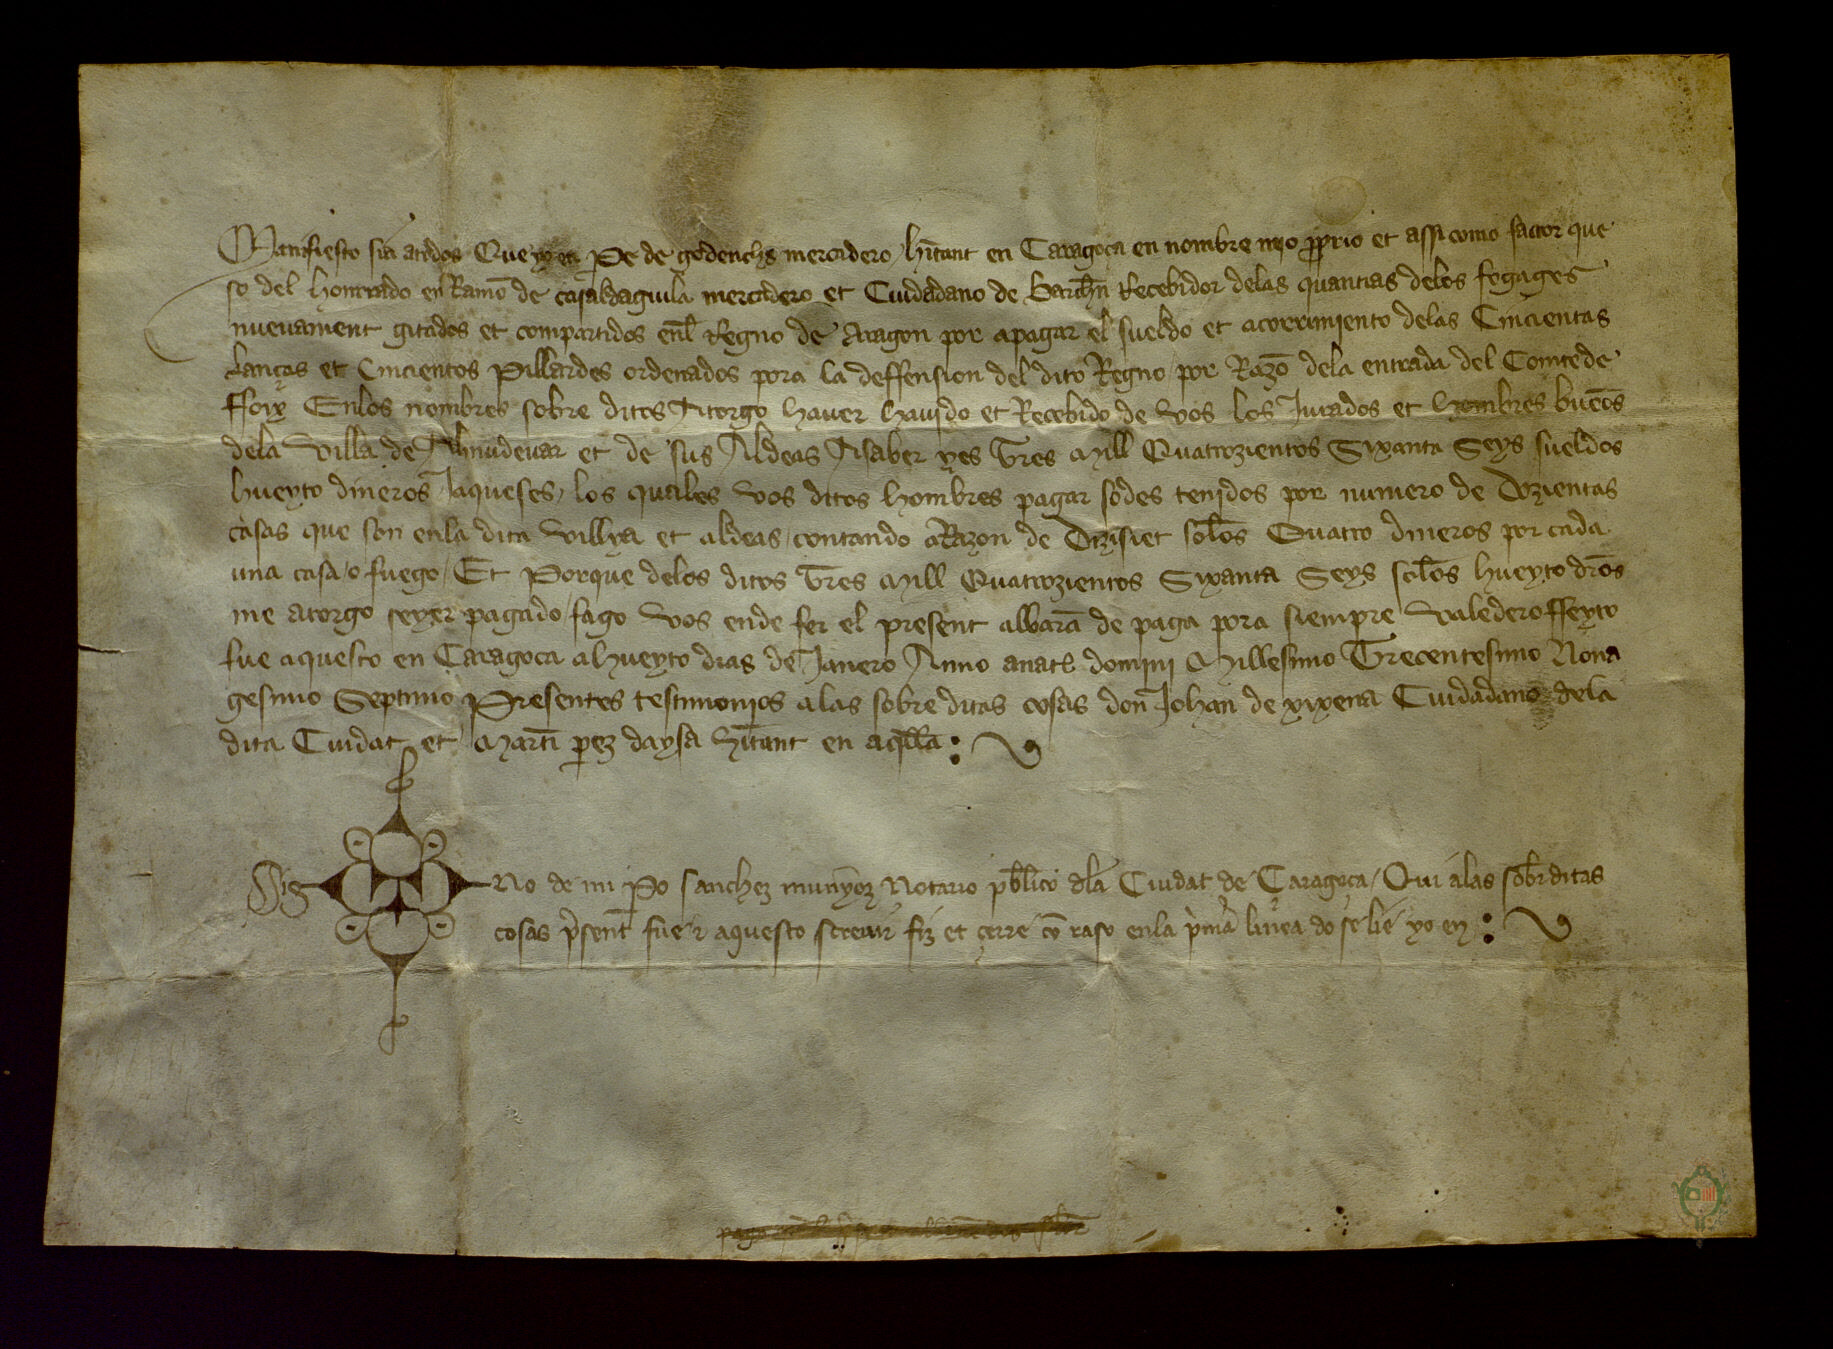 Manifiesto sia atodos Que yo en Pe de godenchs mercadero / hitant en Caragoca en nombre mio pprio et assi como factor que
so del honrrado en Ramo de casaldaguila mercadero et Ciudadano de Barchn Recebidor delas quantias delos fogages
nuevament gitados et compartidos enl Regno de Aragon por apagar el sueldo et acorrimiento delas Cincientas
lanças et Cincientos Pillardes ordenados pora la deffension del dito Regno / por Razo dela entrada del Comte de
ffoix Enlos nombres sobre ditos Atorgo haver havido et Recebido de vos los Jurados et hombres buenos
dela villa de Almudevar et de sus Aldeas Asaber yes Tres Mill Quatrozientos Sixanta Seys sueldos
hueyto dineros Jaqueses / los quales vos ditos hombres pagar sodes tenidos por numero de Dozientas
casas que son enla dita villya et aldeas / contando aRazon de Dizisiet solos Quatro dineros por cada
una casa / o fuego / Et Porque delos ditos Tres Mill Quatrozientos Sixanta Seys solos hueyto dros
me atorgo seyer pagado / fago vos ende fer el present albara de paga pora siempre valedero ffeyto
fue aquesto en Caragoca a hueyto dias de Janero Anno anat domini Millesimo Trecentesimo Nona
gesimo Septimo Presentes testimonios alas sobre ditas cosas don Johan de xixena Ciudadano dela
dita Ciudat et Marti perez daysa hitant en aqlla :
Sig no de mi Po sanchez munyoz Notario publico dla Ciudat de Caragoça / Qui alas sobrditas
cosas psent fue et aquesto screvir fiz et çerre co raso enla pma linea do se lie yo en :